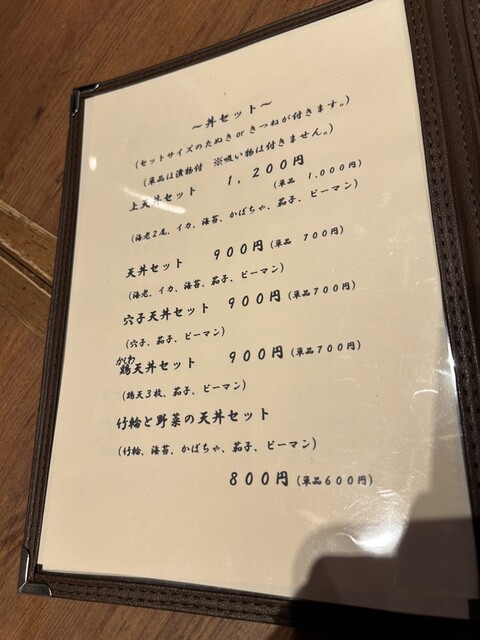 ～丼セット～
（セットサイズのたぬき or きつねが付きます。）
（単品は漬物付　※吸い物は付きません。）
上天丼セット　１，２００円（単品　１，０００円）
（海老２尾、イカ、海苔、かぼちゃ、茄子、ピーマン）
天丼セット　９００円（単品　７００円）
（海老、イカ、海苔、茄子、ピーマン）
穴子天丼セット　９００円（単品７００円）
（穴子、茄子、ピーマン）
かしわ
鶏天丼セット　９００円（単品７００円）
（鶏天３枚、茄子、ピーマン）
竹輪と野菜の天丼セット
（竹輪、海苔、かぼちゃ、茄子、ピーマン）
８００円（単品６００円）